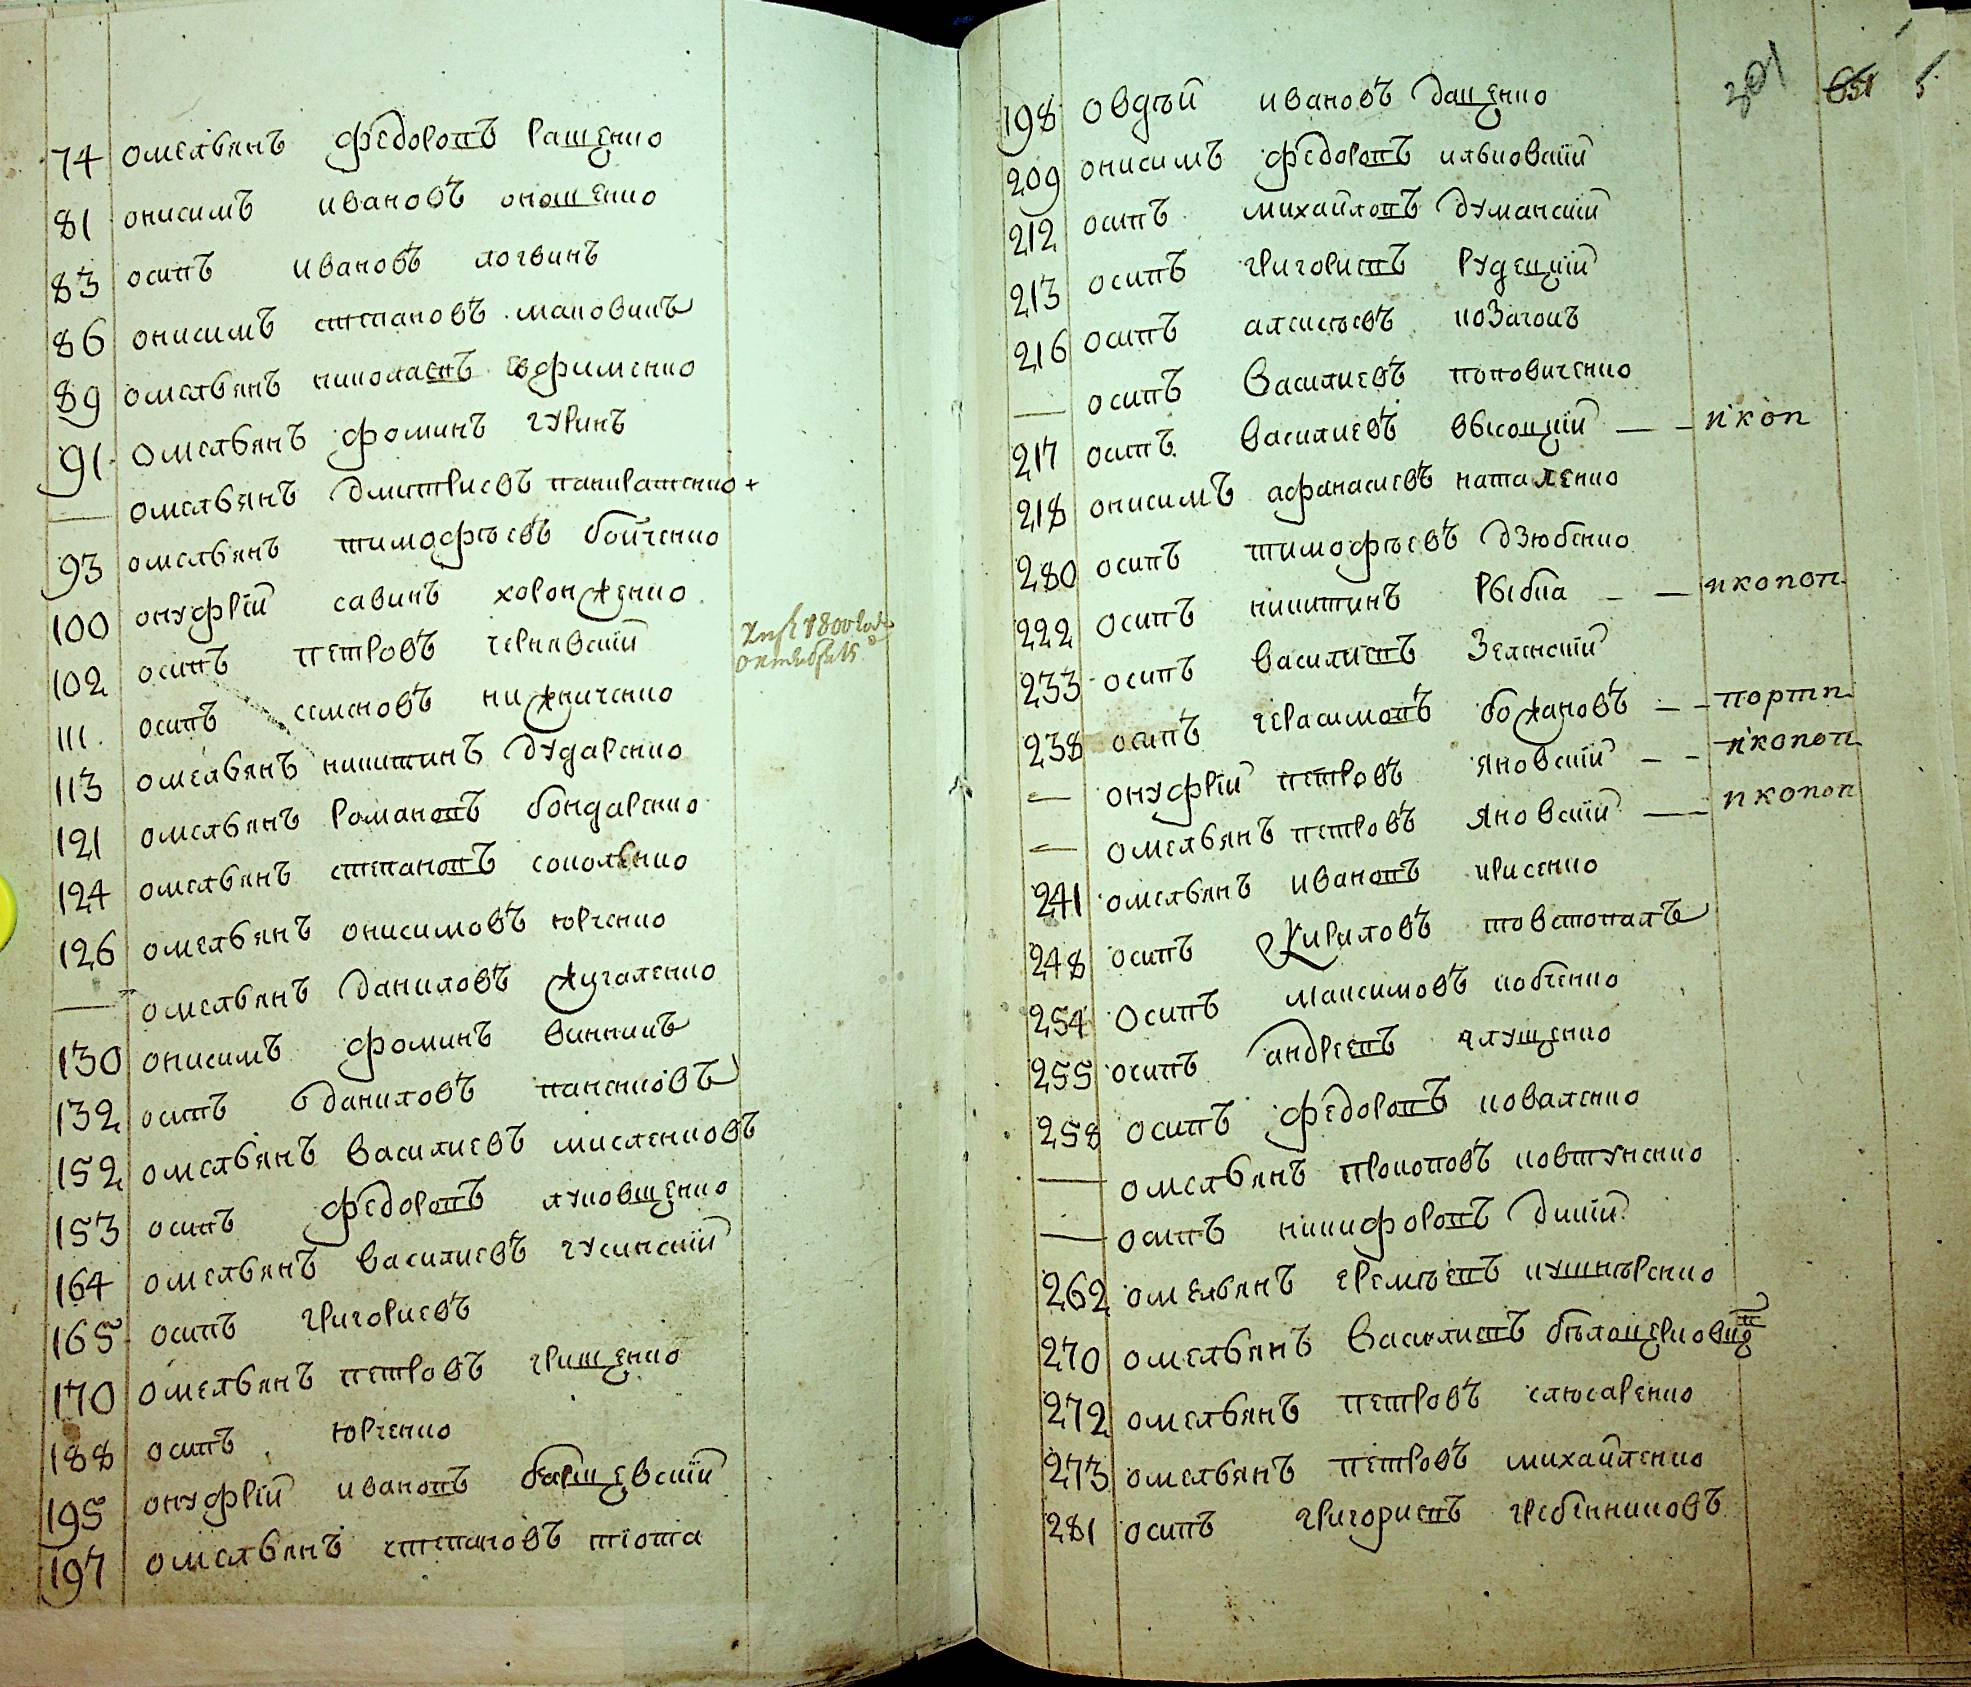 74 омелѣянъ федоровъ ращенко
81 онисимъ ивановъ онощенко
83 осипъ ивановъ логвинъ
86 онисимъ степановъ маковикъ
89 омельянъ николаевъ ефименко
91 омельянъ фоминъ гуринъ
— омельянъ дмитриевъ панкратенко +
93 омельянъ тимофѣевъ бойченко
100 онуфрїй савинъ хоронженко
102 осипъ петровъ чернявскїй
1800 года октября 15
111 осипъ семеновъ нижниченко
113 омельянъ никитинъ дударенко
121 омельянъ романовъ бондаренко
124 омельянъ степановъ соколенко
126 омельянъ онисимовъ юрченко
— омельянъ даниловъ жугаленко
130 онисимъ фоминъ винникъ
132 осипъ даниловъ паненковъ
152 омельянъ василиевъ мисленковъ
153 осипъ федоровъ луковщенко
164 омельянъ василиевъ гусинскїй
165 осипъ григориевъ
170 омельянъ петровъ грищенко
188 осипъ юрченко
195 онуфрїй ивановъ барщевскїй
197 омельянъ степановъ тїота
301 5
198 овдѣй ивановъ дащенко
209 онисимъ федоровъ ильковскїй
212 осипъ михайловъ думанскїй
213 осипъ григориевъ рудецкїй
216 осипъ алексѣевъ козачокъ
— осипъ василиевъ поповиченко
217 осипъ василиевъ высоцкїй — — п коп
218 онисимъ афанасиевъ наталенко
280 осипъ тимофѣевъ дзюбенко
222 осипъ никитинъ рыбка — — п копоп
233 осипъ василиевъ зеленскїй
238 осипъ герасимовъ божановъ — — портп
— онуфрїй петровъ яновскїй — — п копоп
— омельянъ петровъ яновскїй — — п копоп
241 омельянъ ивановъ крисенко
248 осипъ кириловъ товстопалъ
254 осипъ максимовъ кобченко
255 осипъ андреевъ глущенко
258 осипъ федоровъ коваленко
— омельянъ прокоповъ ковтуненко
— осипъ никифоровъ дикїй
262 омельянъ еремѣевъ кушнѣренко
270 омельянъ василиевъ бѣлоцерковид
272 омельянъ петровъ слюсаренко
273 омельянъ петровъ михайленко
281 осипъ григориевъ гребенниковъ